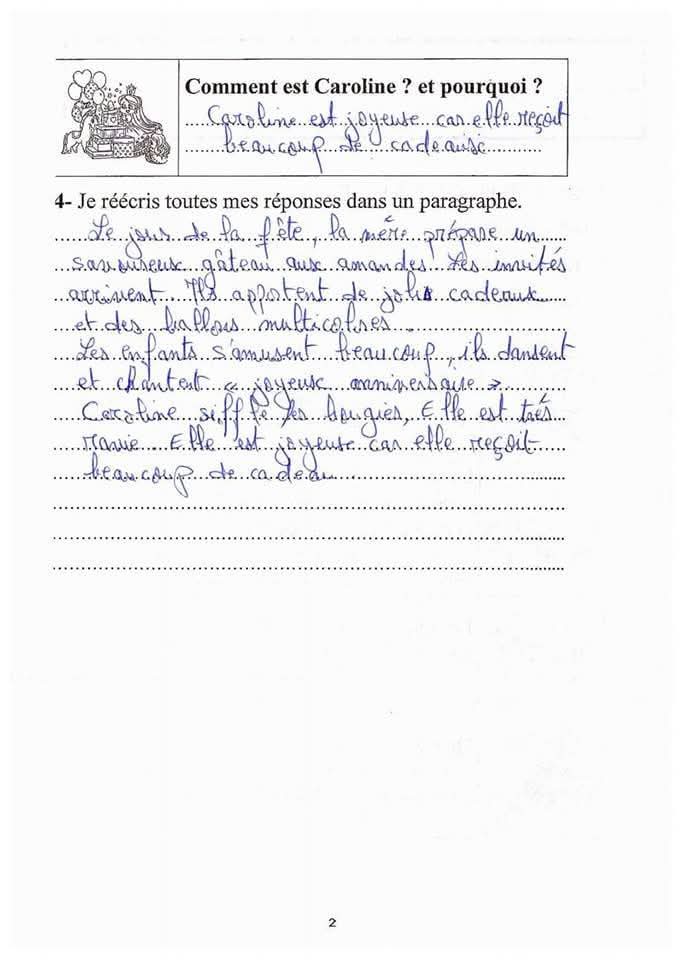 Comment est Caroline ? et pourquoi ?
Caroline est joyeuse car elle reçoit
beaucoup de cadeausc
4- Je réécris toutes mes réponses dans un paragraphe.
Le jous de la fête, la mère prépare un
savoureux gâteau aux amandes. Les invités
arrivent. Ils apportent de jolis cadeaux
et des ballons multicolores.
Les enfants s'amusent beaucoup, ils dansent
et chantent « joyeuse anniversaire »
Caroline siffle les bougies, Elle est très
ravie. Elle est joyeuse car elle reçoit
beaucoup de cadeau.
2